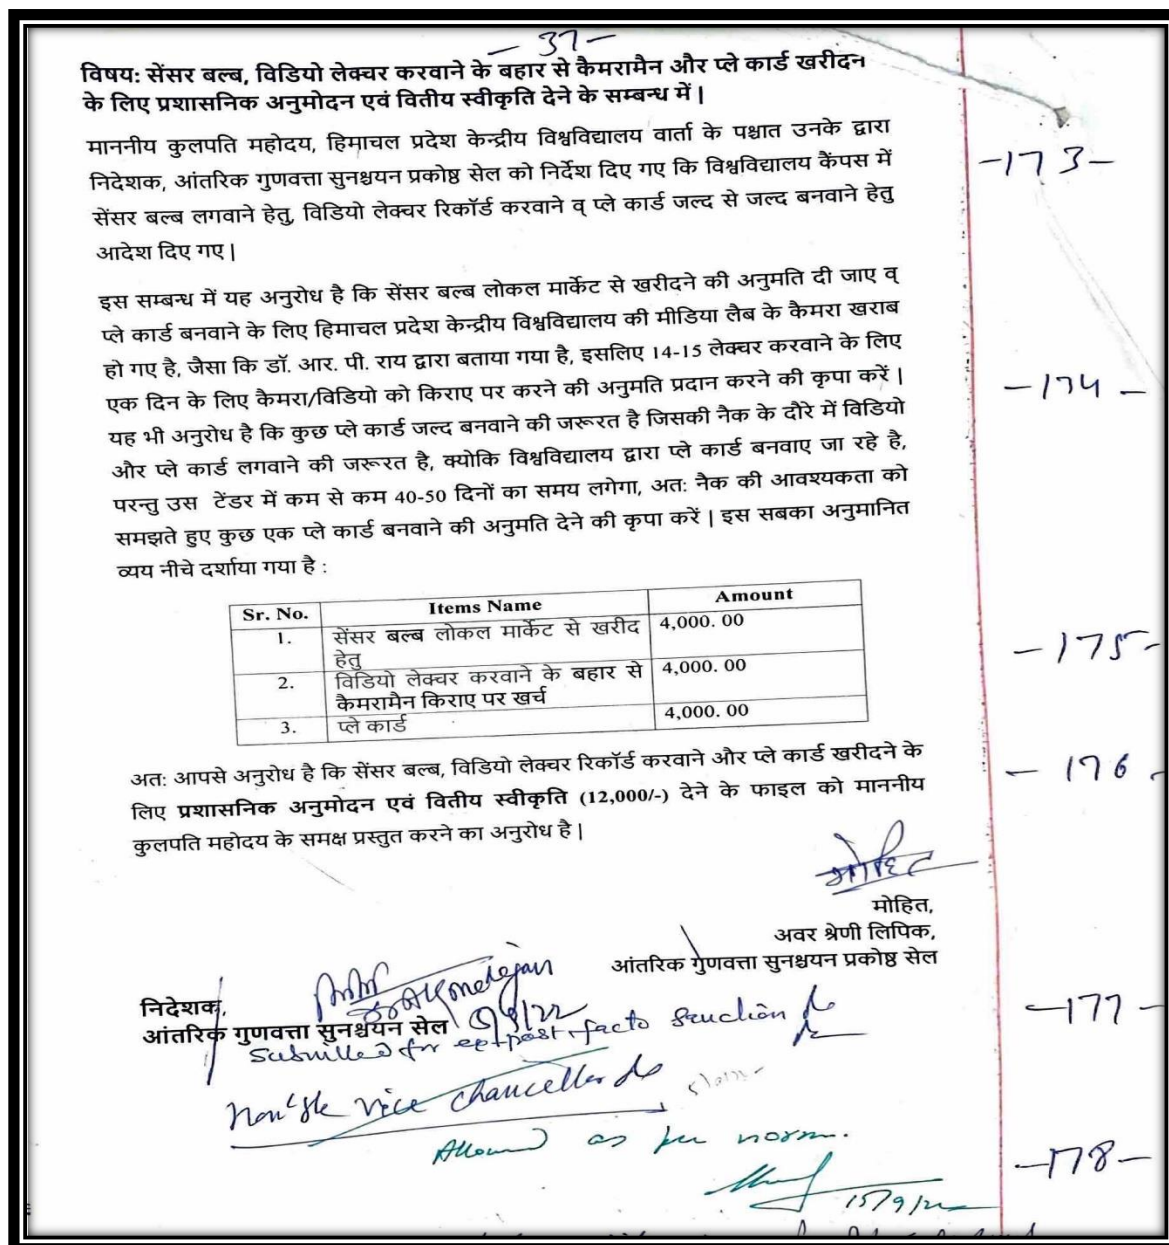 – 37 –
विषय: सेंसर बल्ब, विडियो लेक्चर करवाने के बहार से कैमरामैन और प्ले कार्ड खरीदन
के लिए प्रशासनिक अनुमोदन एवं वितीय स्वीकृति देने के सम्बन्ध में |
माननीय कुलपति महोदय, हिमाचल प्रदेश केन्द्रीय विश्वविद्यालय वार्ता के पश्चात उनके द्वारा
–173–
निदेशक, आंतरिक गुणवत्ता सुनश्चयन प्रकोष्ठ सेल को निर्देश दिए गए कि विश्वविद्यालय कैंपस में
सेंसर बल्ब लगवाने हेतु, विडियो लेक्चर रिकॉर्ड करवाने व् प्ले कार्ड जल्द से जल्द बनवाने हेतु
आदेश दिए गए |
इस सम्बन्ध में यह अनुरोध है कि सेंसर बल्ब लोकल मार्केट से खरीदने की अनुमति दी जाए व्
प्ले कार्ड बनवाने के लिए हिमाचल प्रदेश केन्द्रीय विश्वविद्यालय की मीडिया लैब के कैमरा खराब
हो गए है, जैसा कि डॉ. आर. पी. राय द्वारा बताया गया है, इसलिए 14-15 लेक्चर करवाने के लिए
एक दिन के लिए कैमरा/विडियो को किराए पर करने की अनुमति प्रदान करने की कृपा करें |
–174 –
यह भी अनुरोध है कि कुछ प्ले कार्ड जल्द बनवाने की जरूरत है जिसकी नैक के दौरे में विडियो
और प्ले कार्ड लगवाने की जरूरत है, क्योकि विश्वविद्यालय द्वारा प्ले कार्ड बनवाए जा रहे है,
परन्तु उस टेंडर में कम से कम 40-50 दिनों का समय लगेगा, अत: नैक की आवश्यकता को
समझते हुए कुछ एक प्ले कार्ड बनवाने की अनुमति देने की कृपा करें | इस सबका अनुमानित
व्यय नीचे दर्शाया गया है :
Sr. No. Items Name Amount
1. सेंसर बल्ब लोकल मार्केट से खरीद 4,000. 00
हेतु
–175–
2. विडियो लेक्चर करवाने के बहार से 4,000. 00
कैमरामैन किराए पर खर्च
3. प्ले कार्ड 4,000. 00
अत: आपसे अनुरोध है कि सेंसर बल्ब, विडियो लेक्चर रिकॉर्ड करवाने और प्ले कार्ड खरीदने के
– 176 –
लिए प्रशासनिक अनुमोदन एवं वितीय स्वीकृति (12,000/-) देने के फाइल को माननीय
कुलपति महोदय के समक्ष प्रस्तुत करने का अनुरोध है |
मोहित
मोहित,
अवर श्रेणी लिपिक,
आंतरिक गुणवत्ता सुनश्चयन प्रकोष्ठ सेल
निदेशक,
आंतरिक गुणवत्ता सुनश्चयन सेल
–177–
Submitted for ex-post facto sanction
Hon'ble Vice Chancellor
Allowed as per norm.
–178–
15/9/22